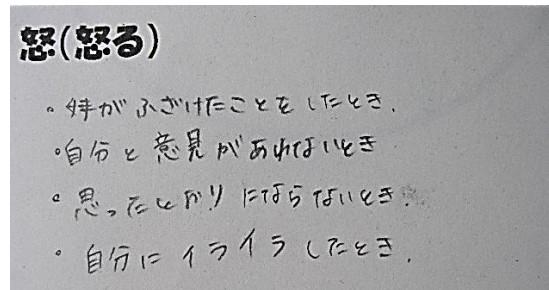 怒(怒る)
・妹がふざけたことをしたとき.
・自分と意見があわないとき
・思ったとおりにならないとき.
・自分にイライラしたとき.